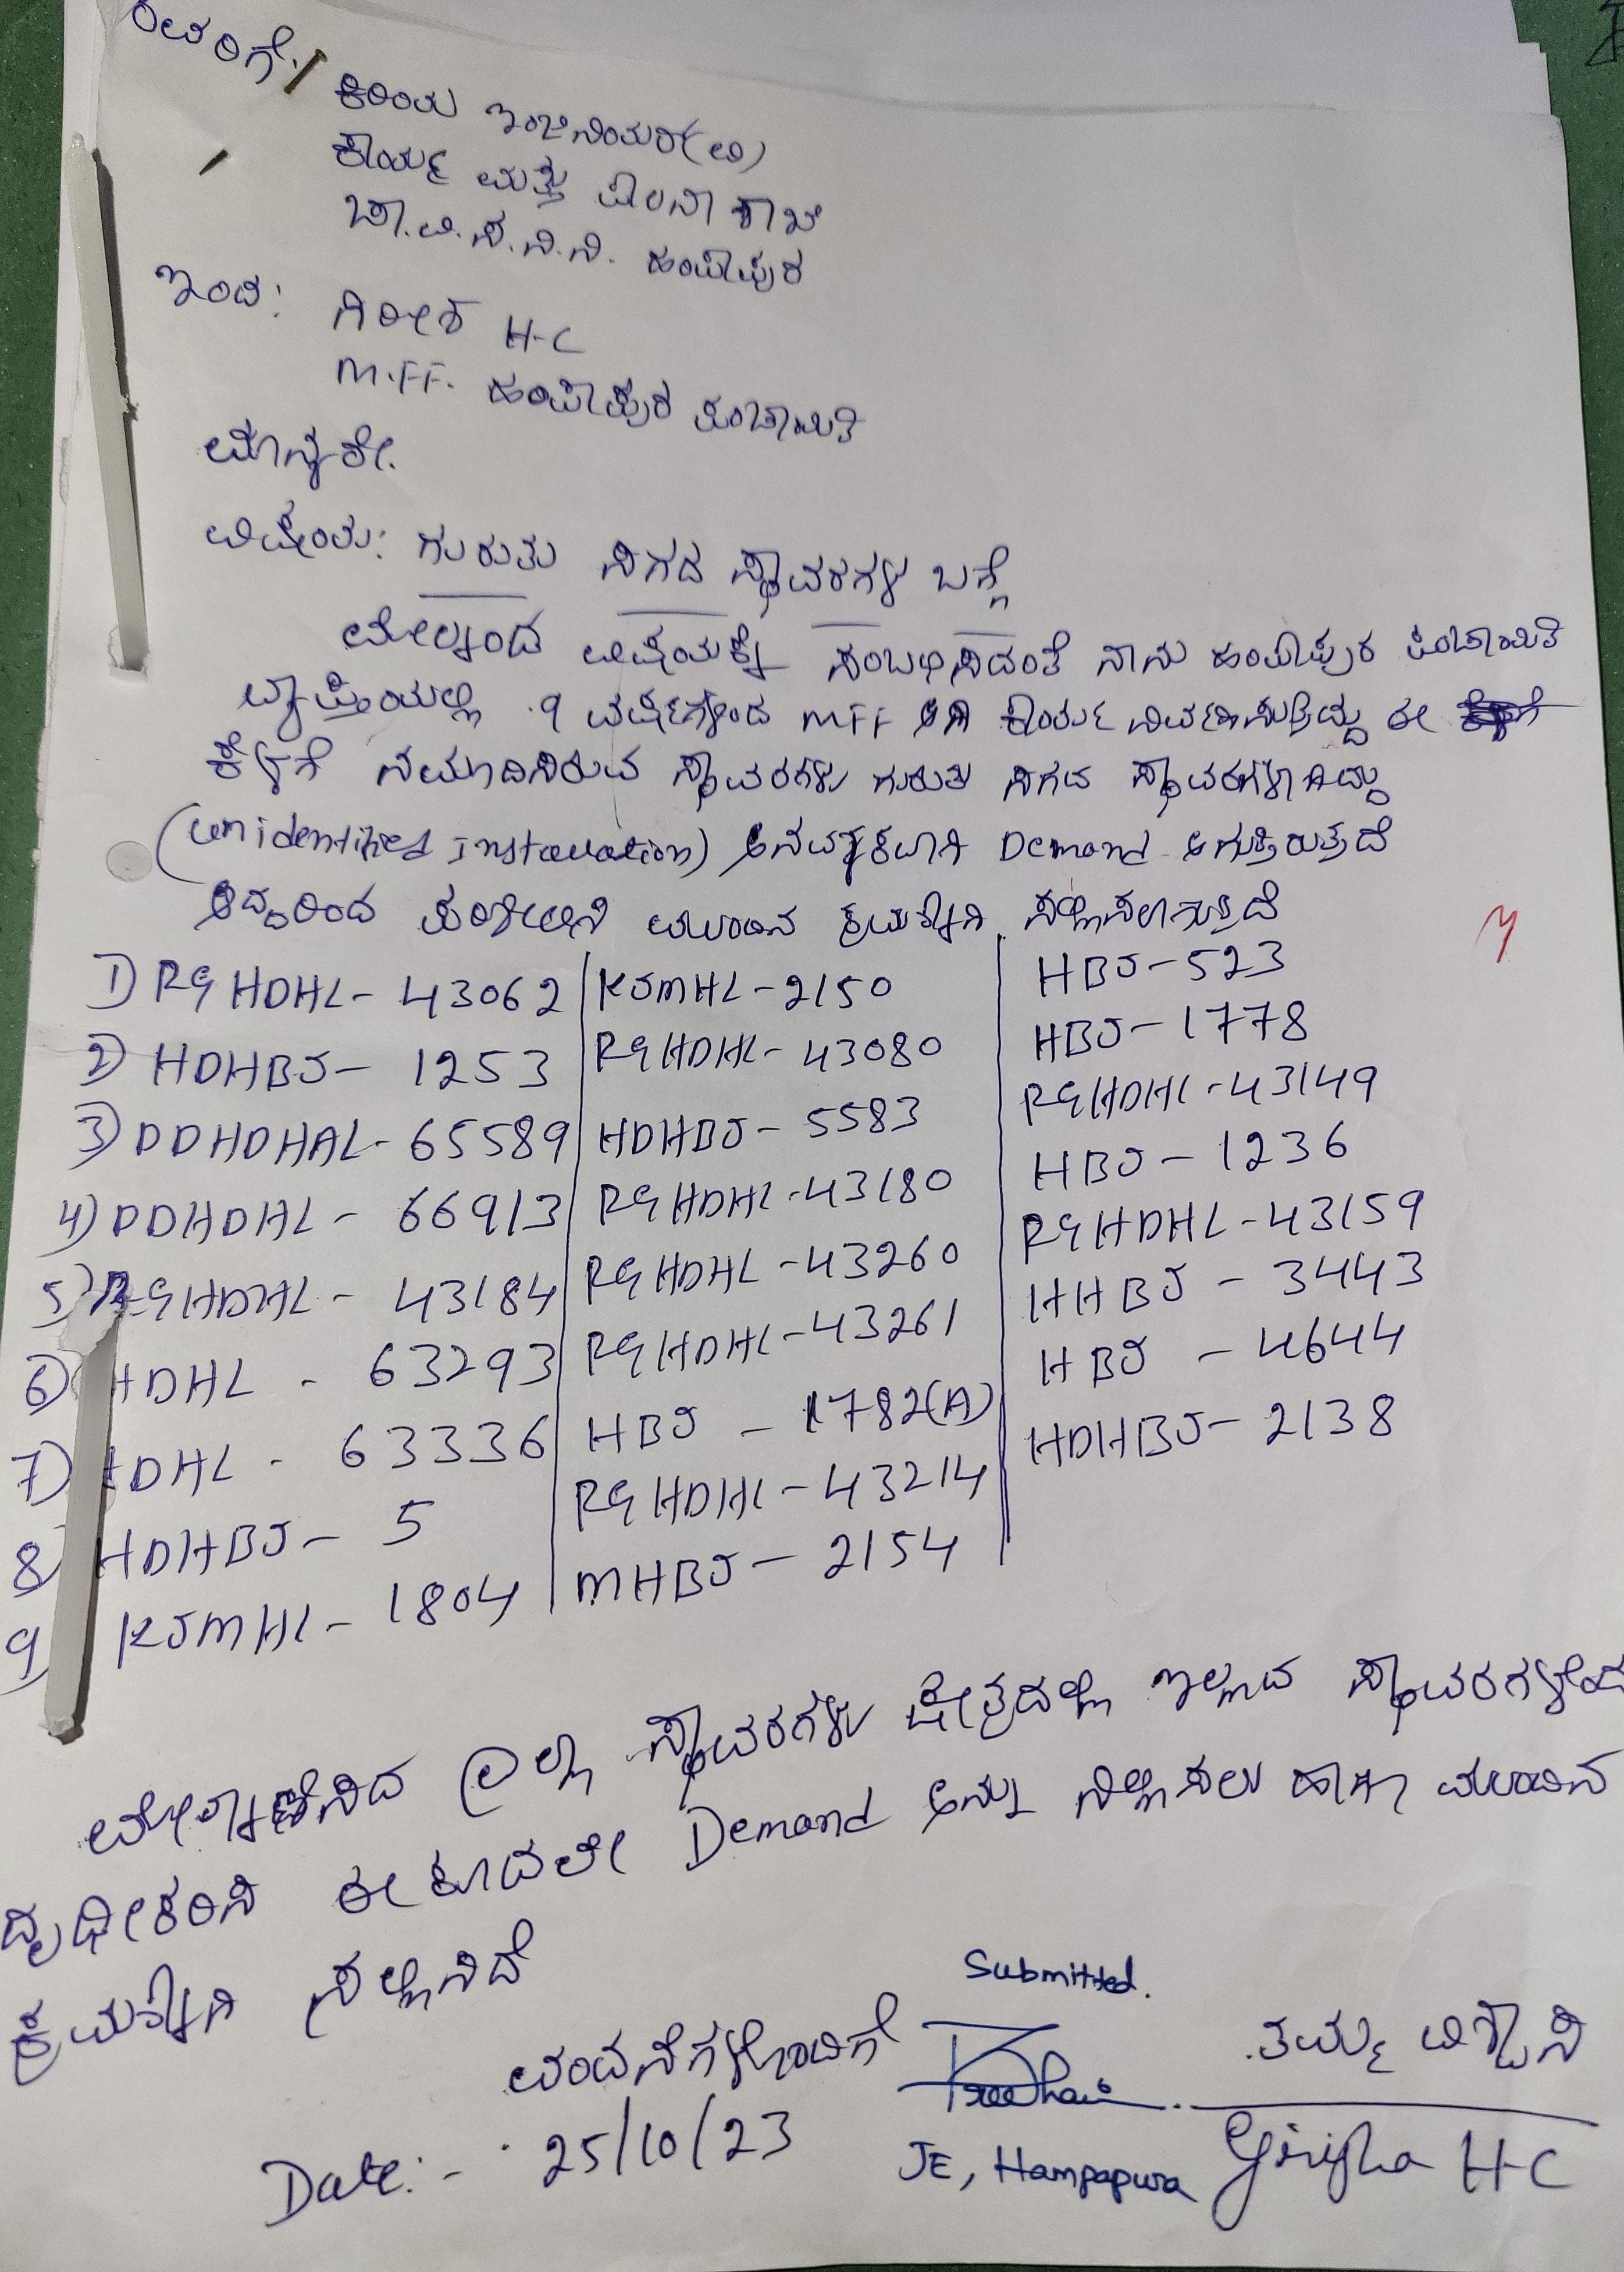 ರವರಿಗೆ:
ಕಿರಿಯ ಇಂಜಿನಿಯರ್(ವಿ)
ಕಾರ್ಯ ಮತ್ತು ಪಾಲನಾ ಶಾಖೆ
ಚಾ.ವಿ.ಸ.ನಿ.ನಿ. ಹಂಪಾಪುರ
ಇಂದ: ಗಿರೀಶ H-C
M.FF. ಹಂಪಾಪುರ ಪಂಚಾಯಿತಿ
ಮಾನ್ಯರೇ.
ವಿಷಯ: ಗುರುತು ಸಿಗದ ಸ್ಥಾವರಗಳ ಬಗ್ಗೆ
ಮೇಲ್ಕಂಡ ವಿಷಯಕ್ಕೆ ಸಂಬಂಧಿಸಿದಂತೆ ನಾನು ಹಂಪಾಪುರ ಪಂಚಾಯಿತಿ
ವ್ಯಾಪ್ತಿಯಲ್ಲಿ 9 ವರ್ಷಗಳಿಂದ MFF ಆಗಿ ಕಾರ್ಯ ನಿರ್ವಹಿಸುತ್ತಿದ್ದು ಈ
ಕೆಳಗೆ ನಮೂದಿಸಿರುವ ಸ್ಥಾವರಗಳು ಗುರುತು ಸಿಗದ ಸ್ಥಾವರಗಳಾಗಿದ್ದು
(unidentified Installation) ಅನವಶ್ಯಕವಾಗಿ Demand ಆಗುತ್ತಿರುತ್ತದೆ
ಆದ್ದರಿಂದ ಪರಿಶೀಲಿಸಿ ಮುಂದಿನ ಕ್ರಮಕ್ಕಾಗಿ ಸಲ್ಲಿಸಲಾಗುತ್ತಿದೆ
1) RGHDHL - 43062 KJMHL - 2150 HBJ - 523
2) HDHBJ - 1253 RGHDHL - 43080 HBJ - 1778
3) DDHDHAL - 65589 HDHBJ - 5583 RGHDHL - 43149
4) DDHDHL - 66913 RGHDHL - 43180 HBJ - 1236
5) RGHDHL - 43184 RGHDHL - 43260 RGHDHL - 43159
6) HDHL - 63293 RGHDHL - 43261 HHBJ - 3443
7) HDHL - 63336 HBJ - 1782(A) HBJ - 4644
8) HDHBJ - 5 RGHDHL - 43214 HDHBJ - 2138
9) KJMHL - 1804 MHBJ - 2154
ಮೇಲ್ಕಾಣಿಸಿದ ಎಲ್ಲಾ ಸ್ಥಾವರಗಳು ಕ್ಷೇತ್ರದಲ್ಲಿ ಇಲ್ಲದ ಸ್ಥಾವರಗಳೆಂದು
ದೃಢೀಕರಿಸಿ ಈ ಕೂಡಲೇ Demand ಅನ್ನು ನಿಲ್ಲಿಸಲು ಹಾಗೂ ಮುಂದಿನ
ಕ್ರಮಕ್ಕಾಗಿ ಸಲ್ಲಿಸಿದೆ
ವಂದನೆಗಳೊಂದಿಗೆ
Submitted.
ತಮ್ಮ ವಿಶ್ವಾಸಿ
Date:- 25/10/23
JE, Hampapura Girisha H-C